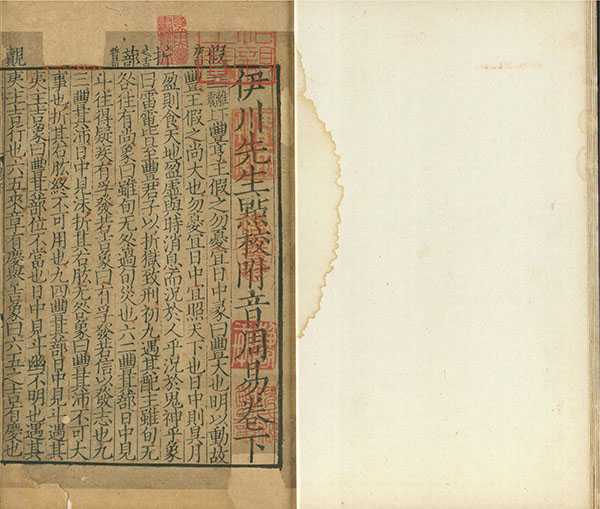 伊川先生點校附音周易卷下
豐亨王假之勿憂宜日中彖曰豐大也明以動故
豐王假之尚大也勿憂宜日中宜照天下也日中則昃月
盈則食天地盈虛與時消息而況於人乎況於鬼神乎象
曰雷電皆至豐君子以折獄致刑初九遇其配主雖旬无
咎往有尚象曰雖旬无咎過旬災也六二豐其蔀日中見
斗往得疑疾有孚發若吉象曰有孚發若信以發志也九
三豐其沛日中見沬折其右肱无咎象曰豐其沛不可大
事也折其右肱終不可用也九四豐其蔀日中見斗遇其
夷主吉象曰豐其蔀位不當也日中見斗幽不明也遇其
夷主吉行也六五來章有慶譽吉象曰六五之吉有慶也
假
折
蔀
覿